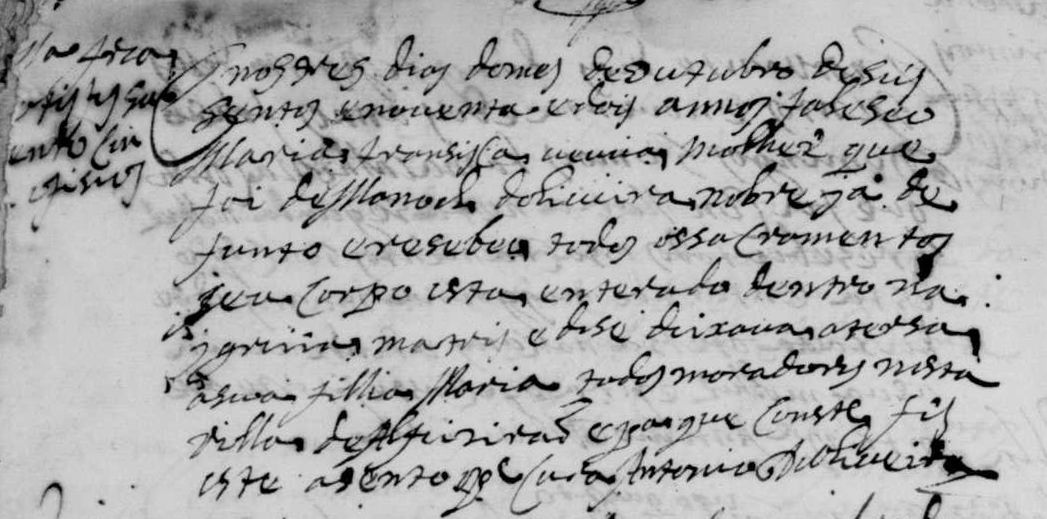 Ma frca
ento Cin
nos tres dias domes deoutubro deseis
sentos enoventa edois annos faleseo
Maria fransisca veuva molher que
foi deManoel doliveira nobre ja de
funto eresebeo todos ossacramentos
seu corpo esta enterado dentro na
igreiia matris e dise deixava atersa
asua fillia Maria todos moradores nesta
villa de e pa que Conste fis
este asento Cura Antonio Doliveira